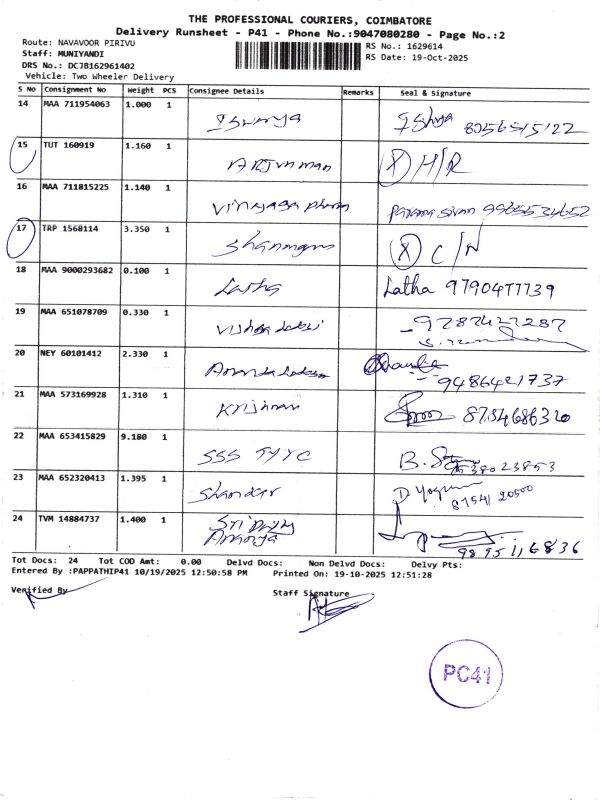 THE PROFESSIONAL COURIERS, COIMBATORE
Delivery Runsheet - P41 - Phone No.:9047080280 - Page No.:2
Route: NAVAVOOR PIRIVU
Staff: MUNIYANDI
DRS No.: DCJB162961402
Vehicle: Two Wheeler Delivery
RS No.: 1629614
RS Date: 19-Oct-2025
S No Consignment No Weight PCS Consignee Details Remarks Seal & Signature
14 MAA 711954063 1.000 1 Iswarya 8056515122
15 TUT 160919 1.160 1 Arjunman (X) H/R
16 MAA 711815225 1.140 1 Vinayaga Pharm 9965534652
17 TRP 1568114 3.350 1 (X) C/N
18 MAA 9000293682 0.100 1 Latha Latha 9790477739
19 MAA 651078709 0.330 1 9787427287
20 NEY 60101412 2.330 1 9486421737
21 MAA 573169928 1.310 1 Krishnan 8754686320
22 MAA 653415829 9.180 1 SSS TYYC
23 MAA 652320413 1.395 1 Shankar 87541 20500
24 TVM 14884737 1.400 1
Tot Docs: 24 Tot COD Amt: 0.00 Delvd Docs: Non Delvd Docs: Delvy Pts:
Entered By :PAPPATHIP41 10/19/2025 12:50:58 PM Printed On: 19-10-2025 12:51:28
Verified By
Staff Signature
PC41